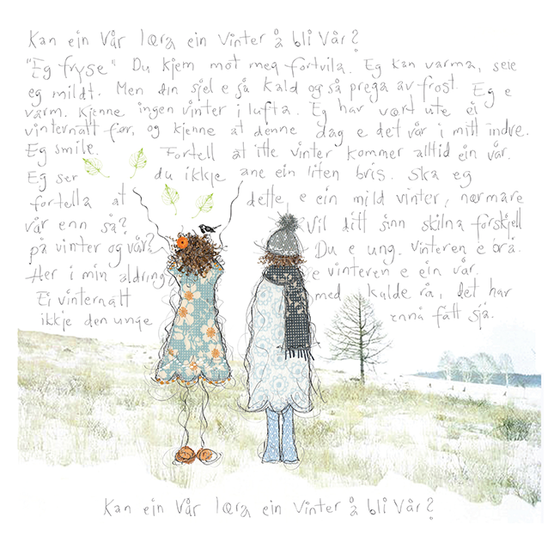 Kan ein Vår læra ein Vinter å bli Vår?
"Eg fryse" Du kjem mot meg fortvila. Eg kan varma, seie
eg mildt. Men din sjel e så kald og så prega av frost. Eg e
varm. Kjenne ingen vinter i lufta. Eg har vært ute ei
vinternatt før, og kjenne at denne dag e det vår i mitt indre.
Eg smile. Fortell at itte vinter kommer alltid ein vår.
Eg ser du ikkje ane ein liten bris. Ska eg
fortella at dette, e ein mild vinter, nærmare
vår enn så? Vil ditt sinn skilna forskjell
på vinter og vår? Du e ung. Vinteren e brå.
Her i min aldring e vinteren e ein vår.
Ei vinternatt med kulde rå, det har
ikkje den unge ennå fått sjå.
Kan ein Vår læra ein Vinter å bli Vår?